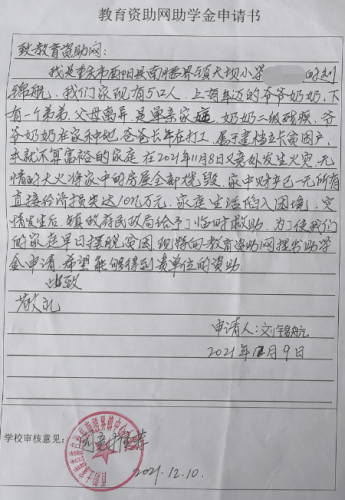 教育资助网助学金申请书
致教育资助网：
我是重庆市酉阳县南腰界镇大坝小学 的刘
锦航，我们家现有5口人，上有年迈的爷爷奶奶，下
有一个弟弟，父母离异，是单亲家庭，奶奶二级残疾，爷
爷奶奶在家种地，爸爸长年在打工，属于建档立卡贫困户，
本就不算富裕的家庭在2021年11月8日又意外发生火灾，无
情的大火将家中的房屋全部烧毁，家中财产已一无所有
直接经济损失达10几万元，家庭生活陷入困境，灾
情发生后，镇政府民政局给予了临时救助，为了使我们
的家庭早日摆脱贫困，现特向教育资助网提出助学
金申请，希望能够得到贵单位的资助
此致
敬礼
申请人：刘锦航
2021年12月9日
学校审核意见： 同意推荐
2021.12.10.